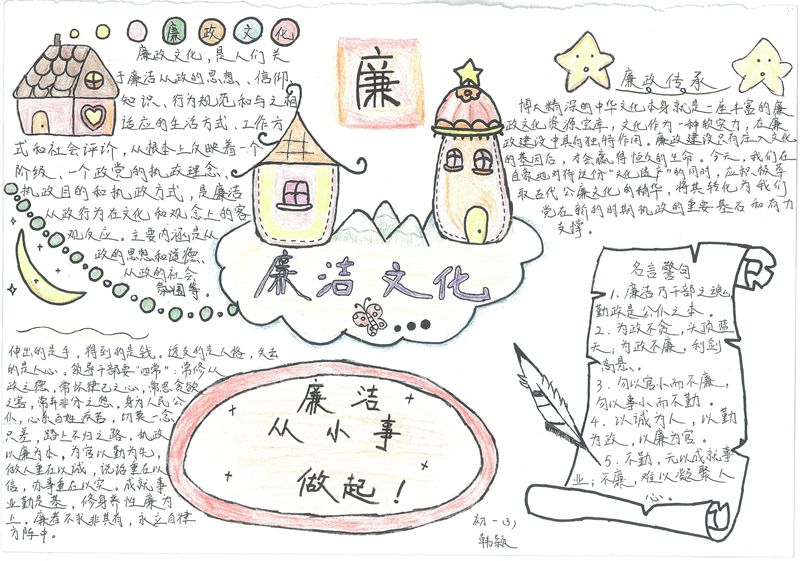 廉政文化
廉政文化，是人们关
于廉洁从政的思想、信仰、
知识、行为规范和与之相
适应的生活方式、工作方
式和社会评价，从根本上反映着一个
阶级、一个政党的执政理念、
执政目的和执政方式，是廉洁
从政行为在文化和观念上的客
观反应。主要内涵是从
政的思想和道德、
从政的社会
氛围等。
廉
廉政传承
博大精深的中华文化本身就是一座丰富的廉
政文化资源宝库，文化作为一种软实力，在廉
政建设中具有独特作用。廉政建设只有注入文化
的基因后，才会赢得恒久的生命。今天，我们在
自豪地对待这份“文化遗产”的同时，应积极萃
取古代公廉文化的精华，将其转化为我们
党在新的时期执政的重要基石和有力
支撑。
廉洁文化
伸出的是手，得到的是钱。送交的是人格，失去
的是人心。领导干部要“四常”：常修从
政之德，常怀律己之心，常思贪欲
之害，常弃非分之想。身为人民公
仆，心系百姓疾苦，切莫一念
只差，踏上不归之路。执政
以廉为本，为官以勤为先，
做人重在以诚，说话重在以
信，办事重在以实。成就事
业勤是基，修身养性廉为
上。廉者不求非其有，永立自律
方阵中。
廉洁
从小事
做起！
名言警句
1、廉洁乃干部之魂，
勤政是公仆之本。
2、为政不贪，头顶蓝
天；为政不廉，利剑
高悬。
3、勿以官小而不廉，
勿以事小而不勤。
4、以诚为人，以勤
为政，以廉为官。
5、不勤，无以成就事
业；不廉，难以凝聚人
心。
初一(3)
韩颖